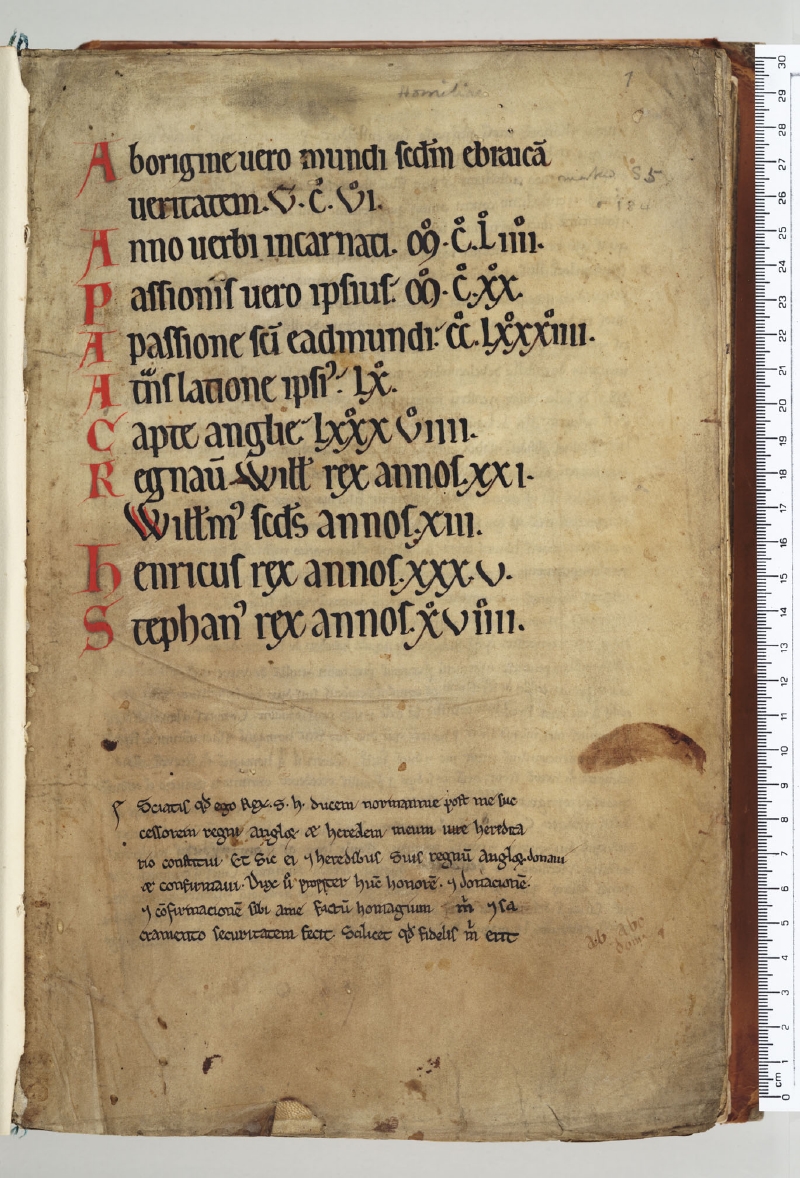 Homiliae
1
Aborigine uero mundi scdm ebraicā
ueritatem. V̊. C̊. V̊I.
Anno uerbi incarnati. M̊. C̊. L̊ IIII.
Passionis uero ipsius. M̊. C̊. XX̊.
A passione scī eadmundi. CC̊. LXXXIIII.
A tⁿslatione ipsiꝰ. LX̊.
Capte anglie LXXX V̊IIII.
Regnaū Willꝉ rex annos. XXI.
Willmꝰ scds annos. XIII.
henricus rex annos. XXX. V.
Stephanꝰ rex annos. X̊VIIII.
Sciatis qđ ego Rex. S. h. ducem normannie post me suc
cessorem regni Anglꝫ & heredem meum iure heredita
rio constitui. Et Sic ei ⁊ heredibus Suis regnū Anglꝫ. donaui
& confirmaui. Dux ū propter hūc honorē. ⁊ donacionē.
⁊ cōfirmacionē sibi a me factū homagium m̄ ⁊ sa
cramento securitatem fecit. Scilicet qđ fidelis m̄ erit
ab abc